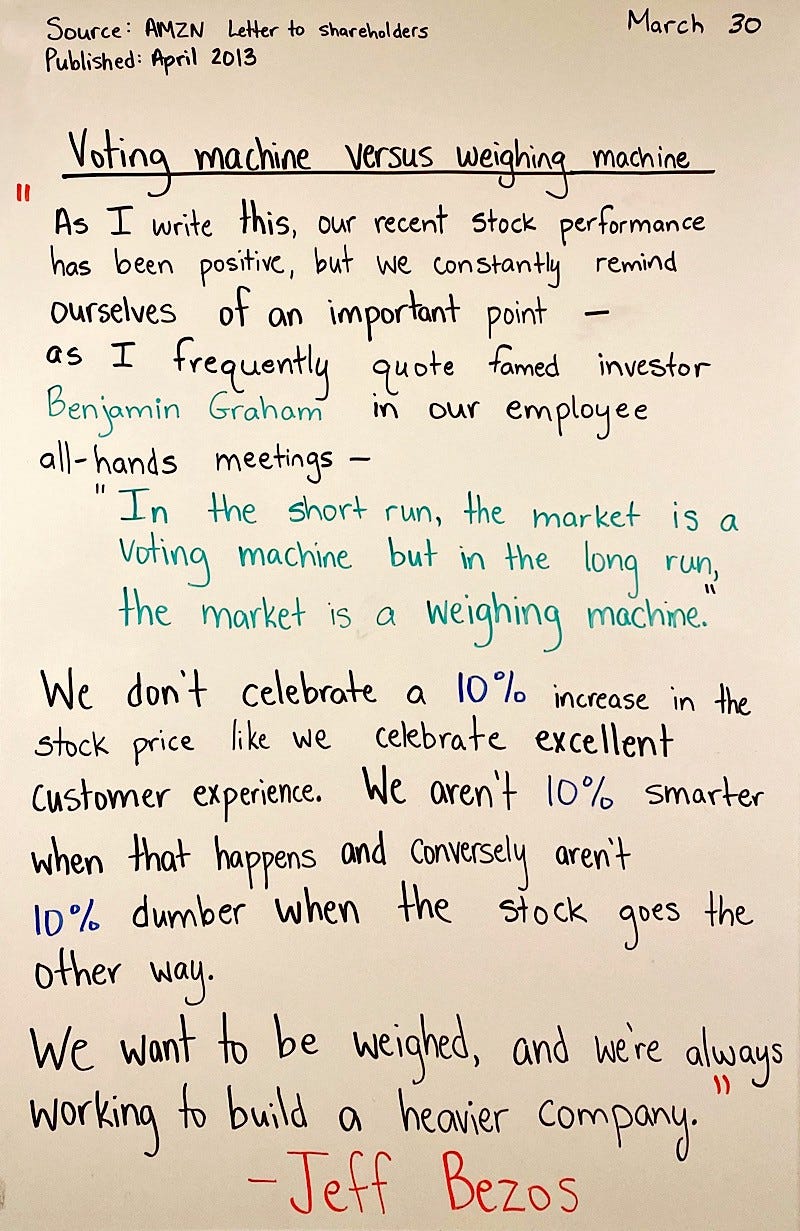 Source: AMZN Letter to shareholders
March 30
Published: April 2013
Voting machine versus weighing machine
"As I write this, our recent stock performance
has been positive, but we constantly remind
ourselves of an important point –
as I frequently quote famed investor
Benjamin Graham in our employee
all-hands meetings –
"In the short run, the market is a
voting machine but in the long run,
the market is a weighing machine."
We don't celebrate a 10% increase in the
stock price like we celebrate excellent
customer experience. We aren't 10% smarter
when that happens and conversely aren't
10% dumber when the stock goes the
other way.
We want to be weighed, and we're always
working to build a heavier company."
– Jeff Bezos